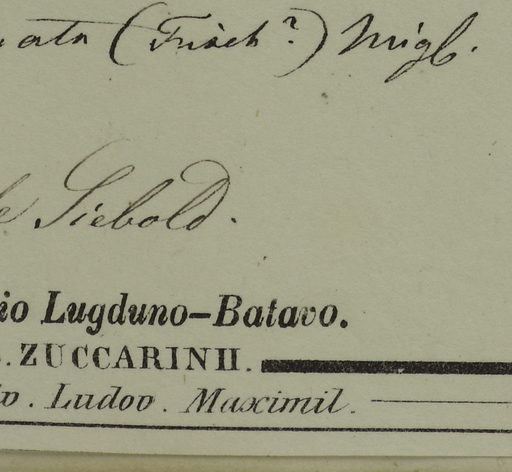 (Fisch?) Miq.
Siebold.
io Lugduno-Batavo.
. ZUCCARINII.
. Ludov. Maximil.